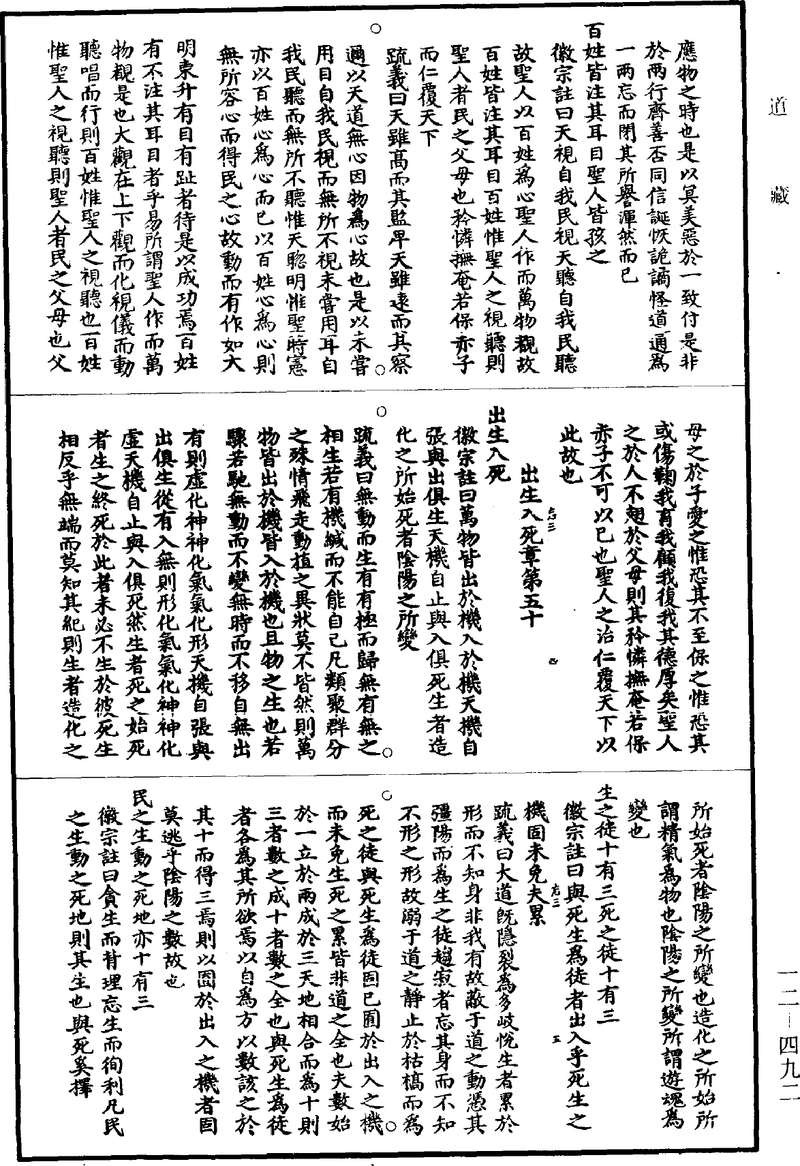 道藏
應物之時也是以冥美惡於一致付是非
於兩行齊善否同信誕恢詭譎怪道通為
一兩忘而閉其所譽渾然而已
百姓皆注其耳目聖人皆孩之
徽宗註曰天視自我民視天聽自我民聽
故聖人以百姓為心聖人作而萬物覩故
百姓皆注其耳目百姓惟聖人之視聽則
聖人者民之父母也矜憐撫奄若保赤子
而仁覆天下
疏義曰天雖高而其監卑天雖遠而其察
邇以天道無心因物為心故也是以未嘗
用目自我民視而無所不視未嘗用耳自
我民聽而無所不聽惟天聰明惟聖時憲
亦以百姓心為心而已以百姓心為心則
無所容心而得民之心故動而有作如大
明東升有目有趾者待是以成功焉百姓
有不注其耳目者乎易所謂聖人作而萬
物覩是也大觀在上下觀而化視儀而動
聽唱而行則百姓惟聖人之視聽也百姓
惟聖人之視聽則聖人者民之父母也父
母之於子愛之惟恐其不至保之惟恐其
或傷鞠我育我顧我復我其德厚矣聖人
之於人不翅於父母則其矜憐撫奄若保
赤子不可以已也聖人之治仁覆天下以
此故也
出生入死章第五十
出生入死
徽宗註曰萬物皆出於機入於機天機自
張與出俱生天機自止與入俱死生者造
化之所始死者陰陽之所變
疏義曰無動而生有有極而歸無有無之
相生若有機緘而不能自已凡類聚群分
之殊情飛走動植之異狀莫不皆然則萬
物皆出於機皆入於機也且物之生也若
驟若馳無動而不變無時而不移自無出
有則虛化神神化氣氣化形天機自張與
出俱生從有入無則形化氣氣化神神化
虛天機自止與入俱死然生者死之始死
者生之終死於此者未必不生於彼死生
相反乎無端而莫知其紀則生者造化之
所始死者陰陽之所變也造化之所始所
謂精氣為物也陰陽之所變所謂遊魂為
變也
生之徒十有三死之徒十有三
徽宗註曰與死生為徒者出入乎死生之
機固未免夫累
疏義曰大道既隱裂為多岐悅生者累於
形而不知身非我有故敝于道之動憑其
彊陽而為生之徒趨寂者忘其身而不知
不形之形故溺于道之靜止於枯槁而為
死之徒與死生為徒固已囿於出入之機
而未免生死之累皆非道之全也夫數始
於一立於兩成於三天地相合而為十則
三者數之成十者數之全也與死生為徒
者各為其所欲焉以自為方以數該之於
其十而得三焉則以囿於出入之機者固
莫逃乎陰陽之數故也
民之生動之死地亦十有三
徽宗註曰貪生而背理忘生而徇利凡民
之生動之死地則其生也與死奚擇
一二－四九二